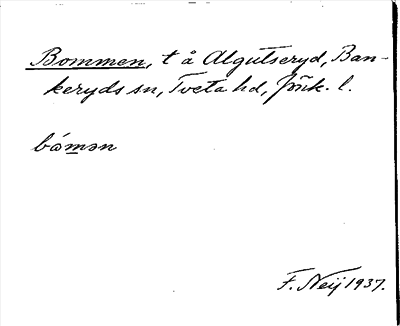 Bommen, t å Algutseryd, Ban-
keryds sn, Tveta hd, Jönk. l.
bómən
F. Neij 1937.